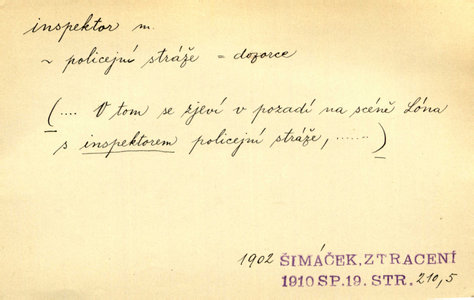 inspektor m.
~ policejní stráže = dozorce
(.... V tom se zjeví v pozadí na scéně Lóna
s inspektorem policejní stráže, ......)
1902 ŠIMÁČEK, ZTRACENÍ
1910 SP. 19. STR. 210,5